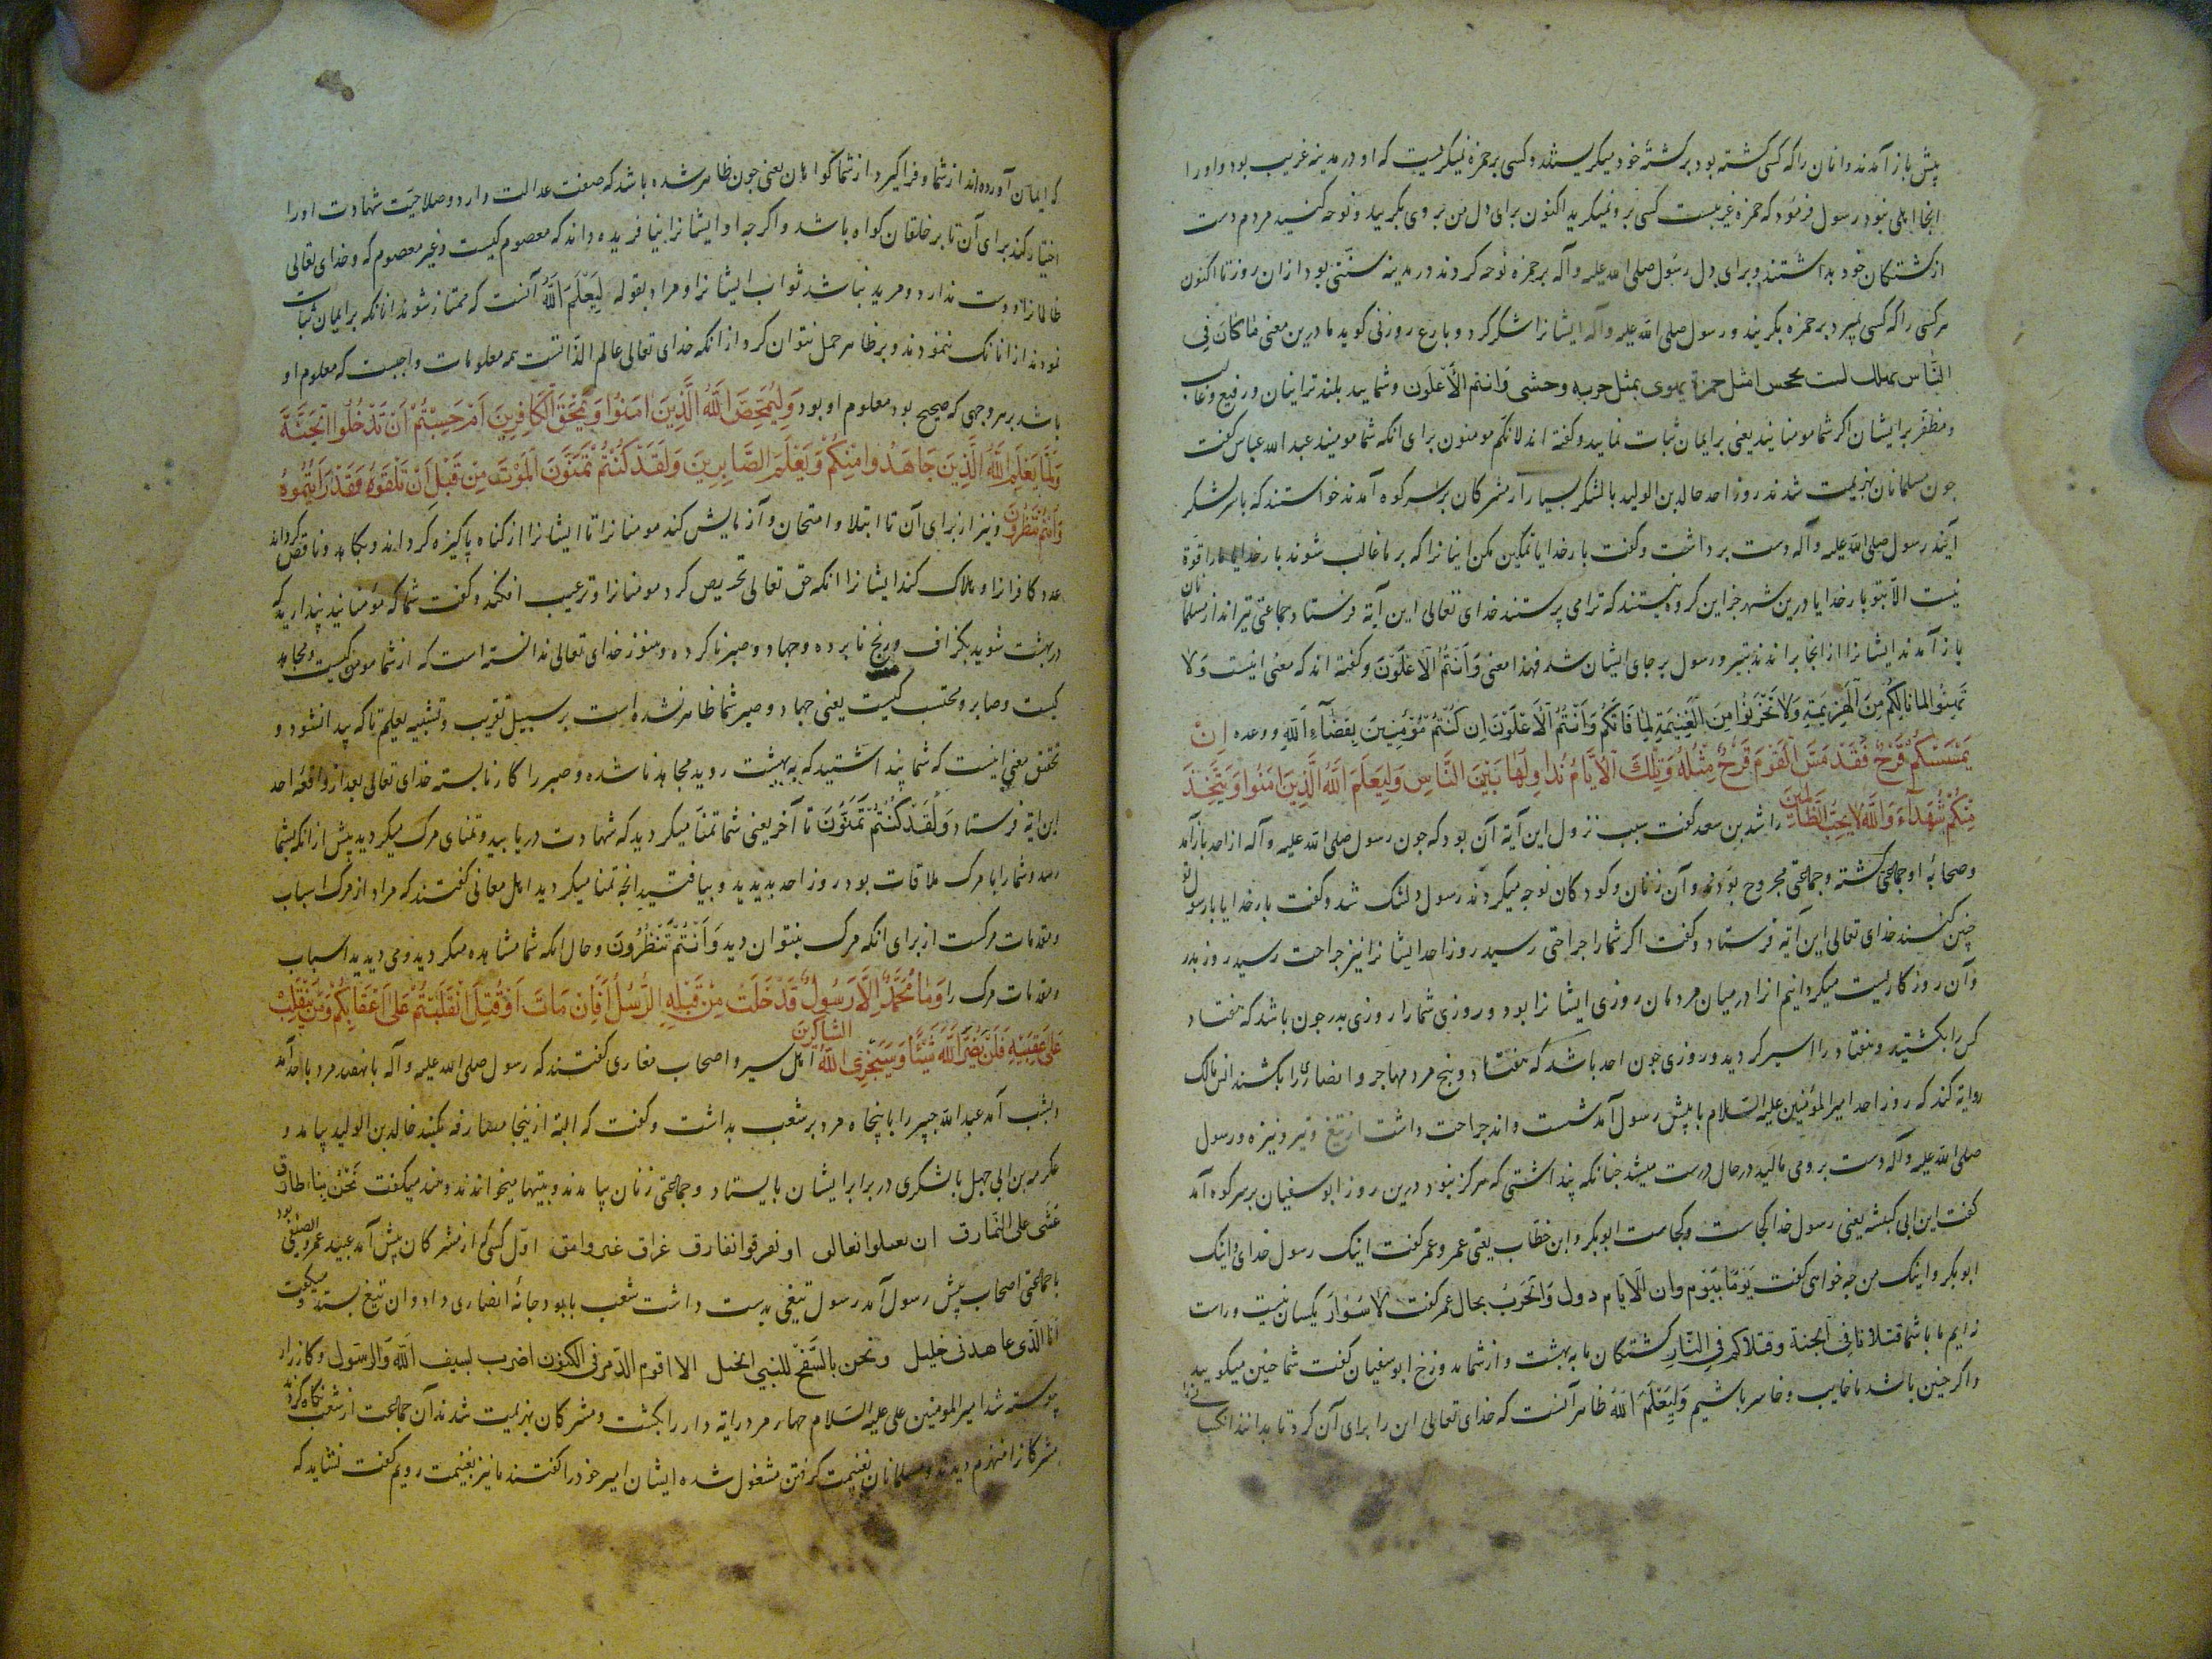 پیش باز آمدند و آنان را که کسی کشته بود بر کشتهٔ خود میکریستند و کسی بر حمزه نمیکریست که او در مدینه غریب بود و او را
انجا اهلی نبود رسول فرمود که حمزه غریبست کسی برو نمیکرید اکنون برای دل من بر وی بکریید و نوحه کنید مردم دست
از کشتکان خود بداشتند و برای دل رسول صلی الله علیه وآله بر حمزه نوحه کردند در مدینه سنتی بود از ان روز تا اکنون
هر کسی را که کسی بمیرد بر حمزه بکریند و رسول صلی الله علیه وآله ایشانرا شکر کرد و بارع روزنی کوید مادرین معنی ما کان فی
الناس وحشی وانتم الاعلون و شمایید بلندتر اینان و رفیع و غالب
و مظفر بر ایشان اکر شما مومنانید یعنی بر ایمان ثبات نمایید و کفته اند لانکم مومنون برای انکه شما مومنید عبد الله عباس کفت
جون مسلمانان بهزیمت شدند روز احد خالد بن الولید با لشکر بسیار از مشرکان بر سر کوه آمدند خواستند که با سر لشکر
آیند رسول صلی الله علیه وآله دست برداشت و کفت بار خدایا تمکین مکن اینانرا که بر ما غالب شوند بار خدایا ما را قوة
نیست الا بتو بار خدایا درین شهر جز این کروه نیستند که ترا می پرستند خدای تعالی این آیة فرستاد و جماعتی تیر انداز مسلمانان
باز آمدند ایشانرا از انجا براندند بتیر و رسول بر جای ایشان شد فهذا معنی وَاَنتُمُ الاَعلَونَ و کفته اند که معنی اینست ولا
تهنوا لما نالکم من الهزیمة ولا تحزنوا من الغنیمة لما فاتکم وانتم الاعلون ان کنتم مؤمنین بقضاء الله و وعده اِنْ
یَمْسَسْکُمْ قَرْحٌ فَقَدْ مَسَّ الْقَوْمَ قَرْحٌ مِثْلُهُ وَتِلْکَ الْاَیَّامُ نُدَاوِلُهَا بَیْنَ النَّاسِ وَلِیَعْلَمَ اللّٰهُ الَّذِینَ اٰمَنُوا وَیَتَّخِذَ
مِنْکُمْ شُهَدَاءَ وَاللّٰهُ لَا یُحِبُّ الظَّالِمِینَ راشد بن سعد کفت سبب نزول این آیة آن بود که جون رسول صلی الله علیه وآله از احد باز آمد
و صحابهٔ او جماعتی کشته و جماعتی مجروح بودند و آن زنان و کودکان نوحه میکردند رسول دلتنک شد و کفت بار خدایا با رسول تو
چنین کنند خدای تعالی این آیة فرستاد و کفت اکر شما را جراحتی رسید روز احد ایشانرا نیز جراحت رسید روز بدر
و آن روز کاریست میکردانیم انرا در میان مردمان روزی ایشانرا بود و روزی شما را روزی بدر جون باشد که هفتاد
کس را بکشتید و هفتاد را اسیر کردید و روزی جون احد باشد که هفتاد و پنج مرد مهاجر و انصاری را بکشند انس مالک
روایة کند که روز احد امیر المؤمنین علیه السلام با پیش رسول آمد شست و اند جراحت داشت از تیغ و تیر و نیزه و رسول
صلی الله علیه وآله دست بر وی مالید در حال درست میشد جنانکه پنداشتی که هرکز نبود درین روز ابو سفیان بر سر کوه آمد
کفت این ابی کبشه یعنی رسول خدا کجاست و کجاست ابوبکر و ابن خطاب یعنی عمر و عمر کفت اینک رسول خدای و اینک
ابوبکر و اینک من چه خواهی کفت یوما بیوم وان الایام دول والحرب سجال عمر کفت لا سواء یکسان نیست و راست
نه ایم ما با شما قتلانا فی الجنة وقتلاکم فی النار کشتکان ما به بهشت و از شما بدوزخ ابو سفیان کفت شما چنین میکویید
و اکر چنین باشد ما خایب و خاسر باشیم وَلِیَعْلَمَ اللهُ ظاهر آنست که خدای تعالی این را برای آن کرد تا بداند انکسانی را
که ایمان آورده اند از شما و فراکیرد از شما کواهان یعنی جون ظاهر شده باشد که صفت عدالت دارد و صلاحیت شهادت او را
اختیار کند برای آن تا بر خلقان کواه باشد و اکر چه او ایشانرا بیافریده داند که معصوم کیست و غیر معصوم که و خدای تعالی
ظالمانرا دوست ندارد و مرید نباشد ثواب ایشانرا و مراد بقوله لِیَعْلَمَ اللهُ آنست که ممتاز شوند انانکه بر ایمان ثبات
نمودند از انانک ننمودند و بر ظاهر حمل نتوان کرد از انکه خدای تعالی عالم الذاتست همه معلومات واجبست که معلوم او
باشد بر هر وجهی که صحیح بود معلوم او بود وَلِیُمَحِّصَ اللّٰهُ الَّذِینَ اٰمَنُوا وَیَمْحَقَ الْکَافِرِینَ اَمْ حَسِبْتُمْ اَنْ تَدْخُلُوا الْجَنَّةَ
وَلَمَّا یَعْلَمِ اللّٰهُ الَّذِینَ جَاهَدُوا مِنْکُمْ وَیَعْلَمَ الصَّابِرِینَ وَلَقَدْ کُنْتُمْ تَمَنَّوْنَ الْمَوْتَ مِنْ قَبْلِ اَنْ تَلْقَوْهُ فَقَدْ رَاَیْتُمُوهُ
وَاَنْتُمْ تَنْظُرُونَ و نیز از برای آن تا ابتلا و امتحان و آزمایش کند مومنانرا تا ایشانرا از کناه پاکیزه کرداند و بکاهد و ناقص کرداند
عدد کافرانرا و هلاک کند ایشانرا انکه حق تعالی تحریص کرد مومنانرا و ترغیب افکند و کفت شما که مؤمنانید پندارید که
در بهشت شوید بکزاف و رنج نابرده و جهاد و صبر ناکرده و هنوز خدای تعالی ندانسته است که از شما مومن کیست و مجاهد
کیست و صابر و محتسب کیست یعنی جهاد و صبر شما ظاهر نشده است بر سبیل تقریب و تشبیه بعلم تا که پیدا نشود و
تحقق معنی اینست که شما پنداشتید که به بهشت روید مجاهد ناشده و صبر را کار نابسته خدای تعالی بعد از واقعهٔ احد
این آیة فرستاد وَلَقَدْ کُنْتُمْ تَمَنَّوْنَ تا آخر یعنی شما تمنا میکردید که شهادت دریابید و تمنای مرک میکردید پیش از انکه بشما
رسد و شما را با مرک ملاقات بود روز احد بدیدید و بیافتید انچه تمنا میکردید اهل معانی کفتند که مراد از مرک اسباب
و مقدمات مرکست از برای انکه مرک بنتوان دید وَاَنْتُمْ تَنْظُرُونَ و حال انکه شما مشاهده میکردید و می دیدید اسباب
و مقدمات مرک را وَمَا مُحَمَّدٌ اِلَّا رَسُولٌ قَدْ خَلَتْ مِنْ قَبْلِهِ الرُّسُلُ اَفَاِنْ مَاتَ اَوْ قُتِلَ انْقَلَبْتُمْ عَلٰی اَعْقَابِکُمْ وَمَنْ یَنْقَلِبْ
عَلٰی عَقِبَیْهِ فَلَنْ یَضُرَّ اللّٰهَ شَیْئًا وَسَیَجْزِی اللّٰهُ الشَّاکِرِینَ اهل سیر و اصحاب مغازی کفتند که رسول صلی الله علیه وآله با هفصد مرد با احد آمد
و بشعب آمد عبد الله جبیر را با پنجاه مرد بر شعب بداشت و کفت که البتة ازینجا مفارقه مکنید خالد بن الولید بیامد و
عکرمه بن ابی جهل با لشکری در برابر ایشان بایستاد و جماعتی زنان بیامدند و بیتها میخواندند و هند میکفت نَحْنُ بنات طارق
نمشی علی النمارق ان تقبلوا نعانق او تدبروا نفارق فراق غیر وامق اول کسی که از مشرکان پیش آمد عمرو الصیفی بود
با جماعتی اصحاب پیش رسول آمد رسول تیغی بدست داشت بابو دجانهٔ انصاری داد و آن تیغ بستد و میکفت
انا الذی عاهدنی خلیلی ونحن بالسفح للنبی الخیل الا اقوم الدهر فی الکیول اضرب بسیف الله والرسول و کارزار
پیوسته شد امیر المومنین علی علیه السلام چهار مرد رایة دار را بکشت و مشرکان بهزیمت شدند آن جماعت از شعب نکاه کردند
مشرکانرا منهزم دیدند و مسلمانان بغنیمت کرفتن مشغول شده ایشان امیر خود را کفتند ما نیز بغنیمت رویم کفت نشاید که